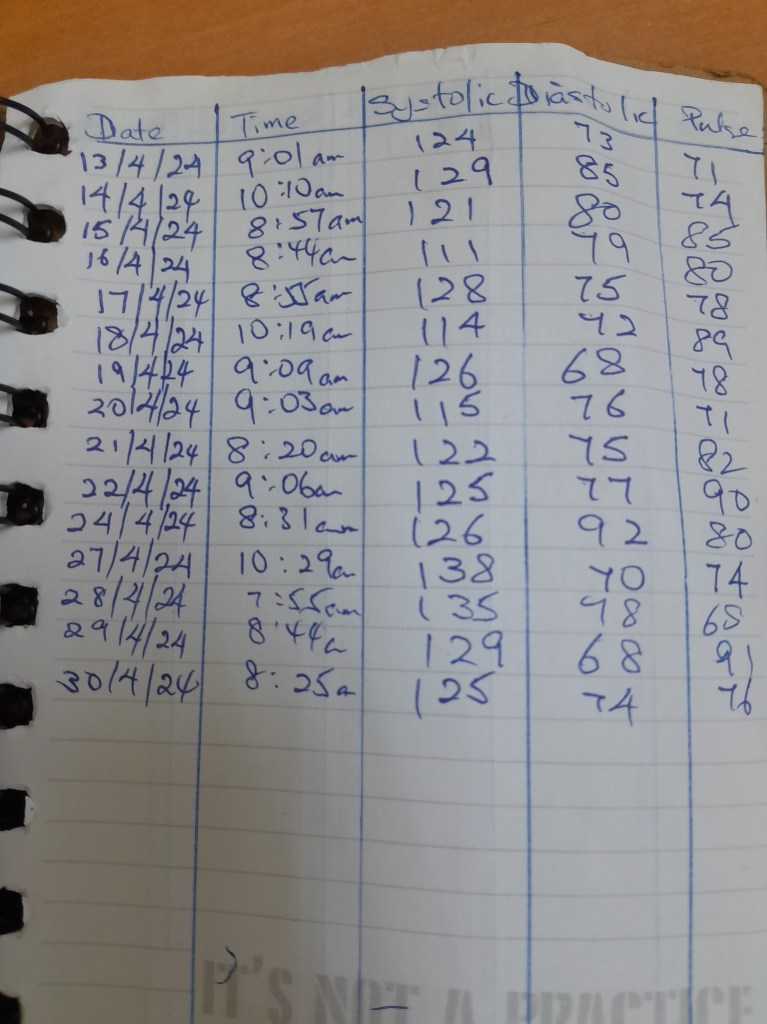 Date Time Systolic Diastolic Pulse
13/4/24 9:01am 124 73 71
14/4/24 10:10am 129 85 74
15/4/24 8:57am 121 80 85
16/4/24 8:44am 111 79 80
17/4/24 8:55am 128 75 78
18/4/24 10:19am 114 72 89
19/4/24 9:09am 126 68 78
20/4/24 9:03am 115 76 71
21/4/24 8:20am 122 75 82
22/4/24 9:06am 125 77 90
24/4/24 8:31am 126 92 80
27/4/24 10:29am 138 70 74
28/4/24 7:55am 135 78
29/4/24 8:44a 129 68 91
30/4/24 8:25a 125 74 76
IT'S NOT A PRACTICE